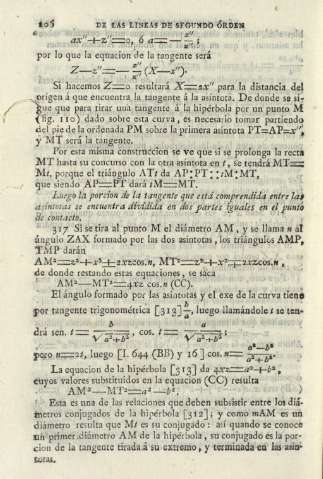 106 DE LAS LINEAS DE SEGUNDO ÓRDEN
ax″+z″=0, ó a=−z″/x″;
por lo que la equacion de la tangente será
Z−z″=−z″/x″ (X−x″).
Si hacemos Z=0 resultará X=2x″ para la distancia del
orígen á que encuentra la tangente á la asíntota. De donde se si-
gue que para tirar una tangente á la hipérbola por un punto M
(fig. 110) dado sobre esta curva, es necesario tomar partiendo
del pie de la ordenada PM sobre la primera asíntota PT=AP=x″,
y MT será la tangente.
Por esta misma construccion se ve que si se prolonga la recta
MT hasta su concurso con la otra asíntota en t, se tendrá MT=
Mt, porque el triángulo ATt da AP:PT::tM:MT,
que siendo AP=PT dará tM=MT.
Luego la porcion de la tangente que está comprendida entre las
asíntotas se encuentra dividida en dos partes iguales en el punto
de contacto.
317 Si se tira al punto M el diámetro AM, y se llama n al
ángulo ZAX formado por las dos asíntotas, los triángulos AMP,
TMP darán
AM²=z²+x²+2xzcos.n, MT²=z²+x²−2xzcos.n,
de donde restando estas equaciones, se saca
AM²−MT²=4xz cos.n (CC).
El ángulo formado por las asíntotas y el exe de la curva tiene
por tangente trigonométrica [313] b/a, luego llamándole t se ten-
drá sen. t=b/√a²+b², cos. t=a/√a²+b²,
pero n=2t, luego [I. 644 (BB) y 16] cos.n=a²−b²/a²+b².
La equacion de la hipérbola [313] da 4xz=a²+b²,
cuyos valores substituidos en la equacion (CC) resulta
AM²−MT²=a²−b².
Esta es una de las relaciones que deben subsistir entre los diá-
metros conjugados de la hipérbola [312]; y como mAM es un
diámetro resulta que Mt es su conjugado: así quando se conoce
un primer diámetro AM de la hipérbola, su conjugado es la por-
cion de la tangente tirada á su extremo, y terminada en las asín-
totas.